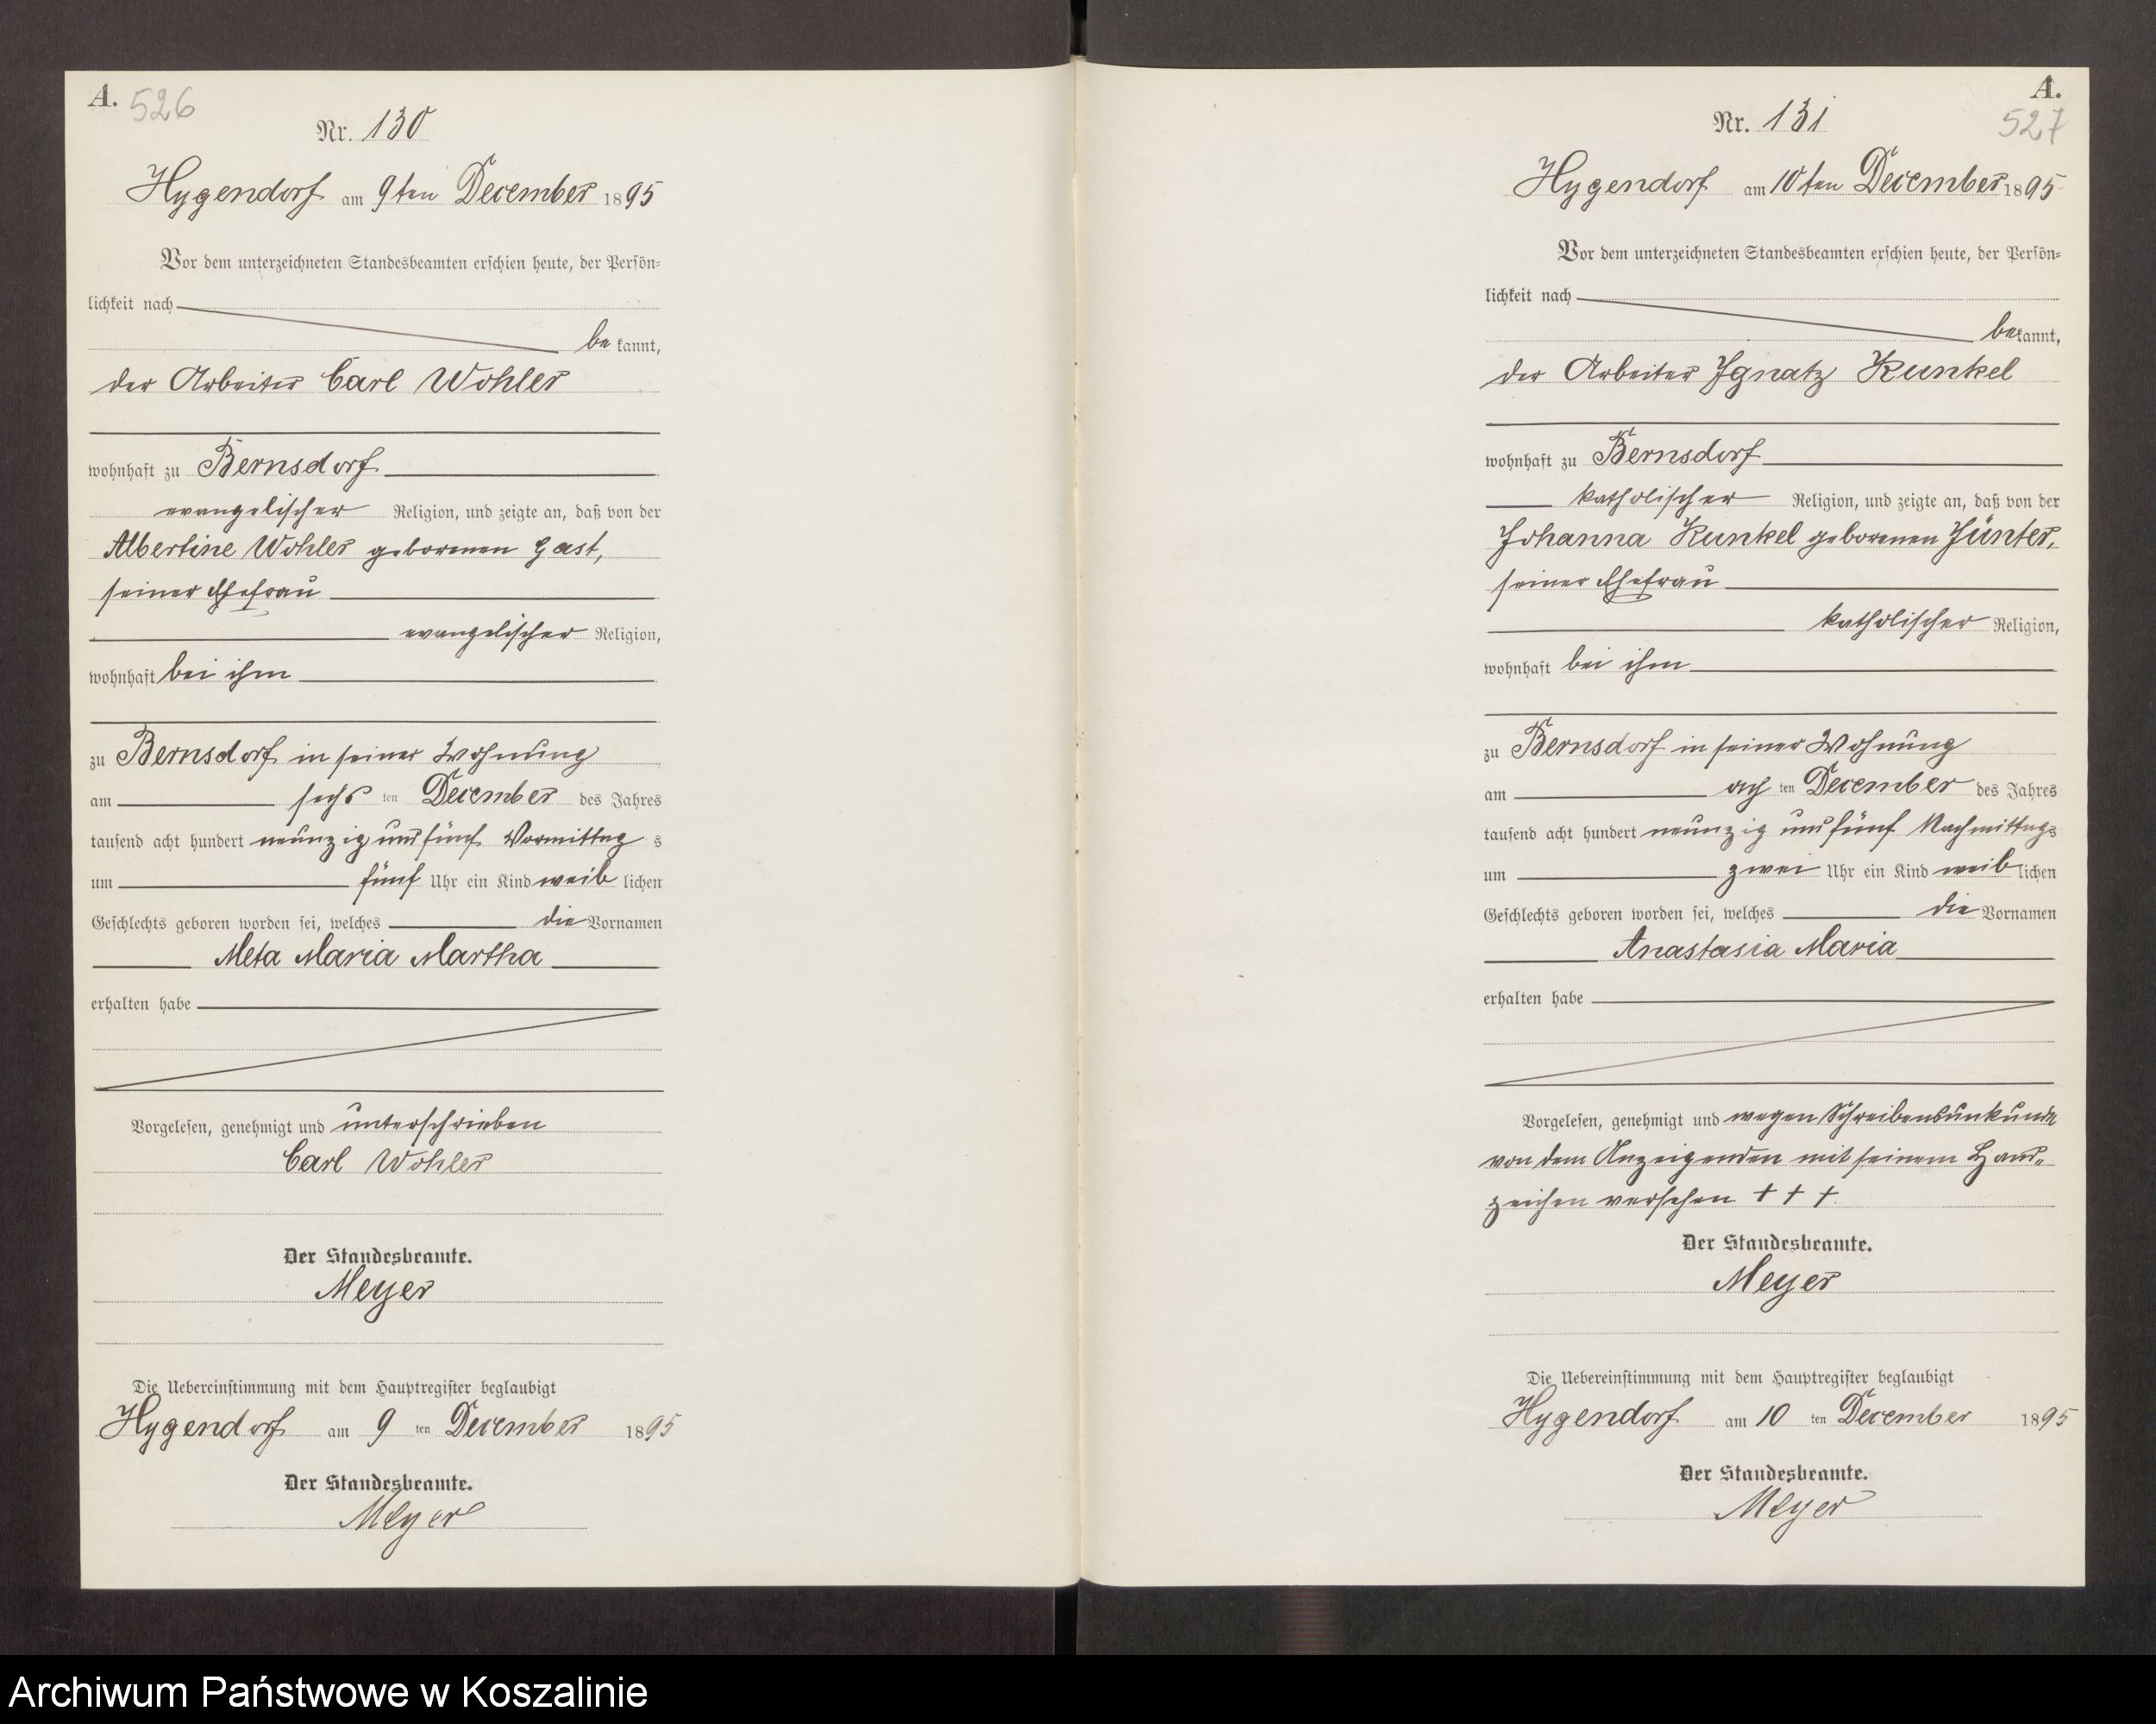 A. 526
Nr. 130
Hygendorf am 9ten December 1895
Vor dem unterzeichneten Standesbeamten erschien heute, der Persön-
lichkeit nach
be kannt,
der Arbeiter Carl Wohler
wohnhaft zu Bernsdorf
evangelischer Religion, und zeigte an, daß von der
Albertine Wohler geborenen Gast,
seiner Ehefrau
evangelischer Religion,
wohnhaft bei ihm
zu Bernsdorf in seiner Wohnung
am sechs ten December des Jahres
tausend acht hundert neunzig und fünf Vormittag s
um fünf Uhr ein Kind weib lichen
Geschlechts geboren worden sei, welches die Vornamen
Meta Maria Martha
erhalten habe
Vorgelesen, genehmigt und unterschrieben
Carl Wohler
Der Standesbeamte.
Meyer
Die Uebereinstimmung mit dem Hauptregister beglaubigt
Hygendorf am 9 ten December 1895
Der Standesbeamte.
Meyer
A.
527
Nr. 131
Hygendorf am 10ten December 1895
Vor dem unterzeichneten Standesbeamten erschien heute, der Persön-
lichkeit nach
bekannt,
der Arbeiter Ignatz Kunkel
wohnhaft zu Bernsdorf
katholischer Religion, und zeigte an, daß von der
Johanna Kunkel geborenen Jünter,
seiner Ehefrau
katholischer Religion,
wohnhaft bei ihm
zu Bernsdorf in seiner Wohnung
am ach ten December des Jahres
tausend acht hundert neunzig und fünf Nachmittags
um zwei Uhr ein Kind weib lichen
Geschlechts geboren worden sei, welches die Vornamen
Anastasia Maria
erhalten habe
Vorgelesen, genehmigt und wegen Schreibensunkunde
von dem Anzeigenden mit seinem Hand-
zeichen versehen + + +.
Der Standesbeamte.
Meyer
Die Uebereinstimmung mit dem Hauptregister beglaubigt
Hygendorf am 10 ten December 1895
Der Standesbeamte.
Meyer
Archiwum Państwowe w Koszalinie